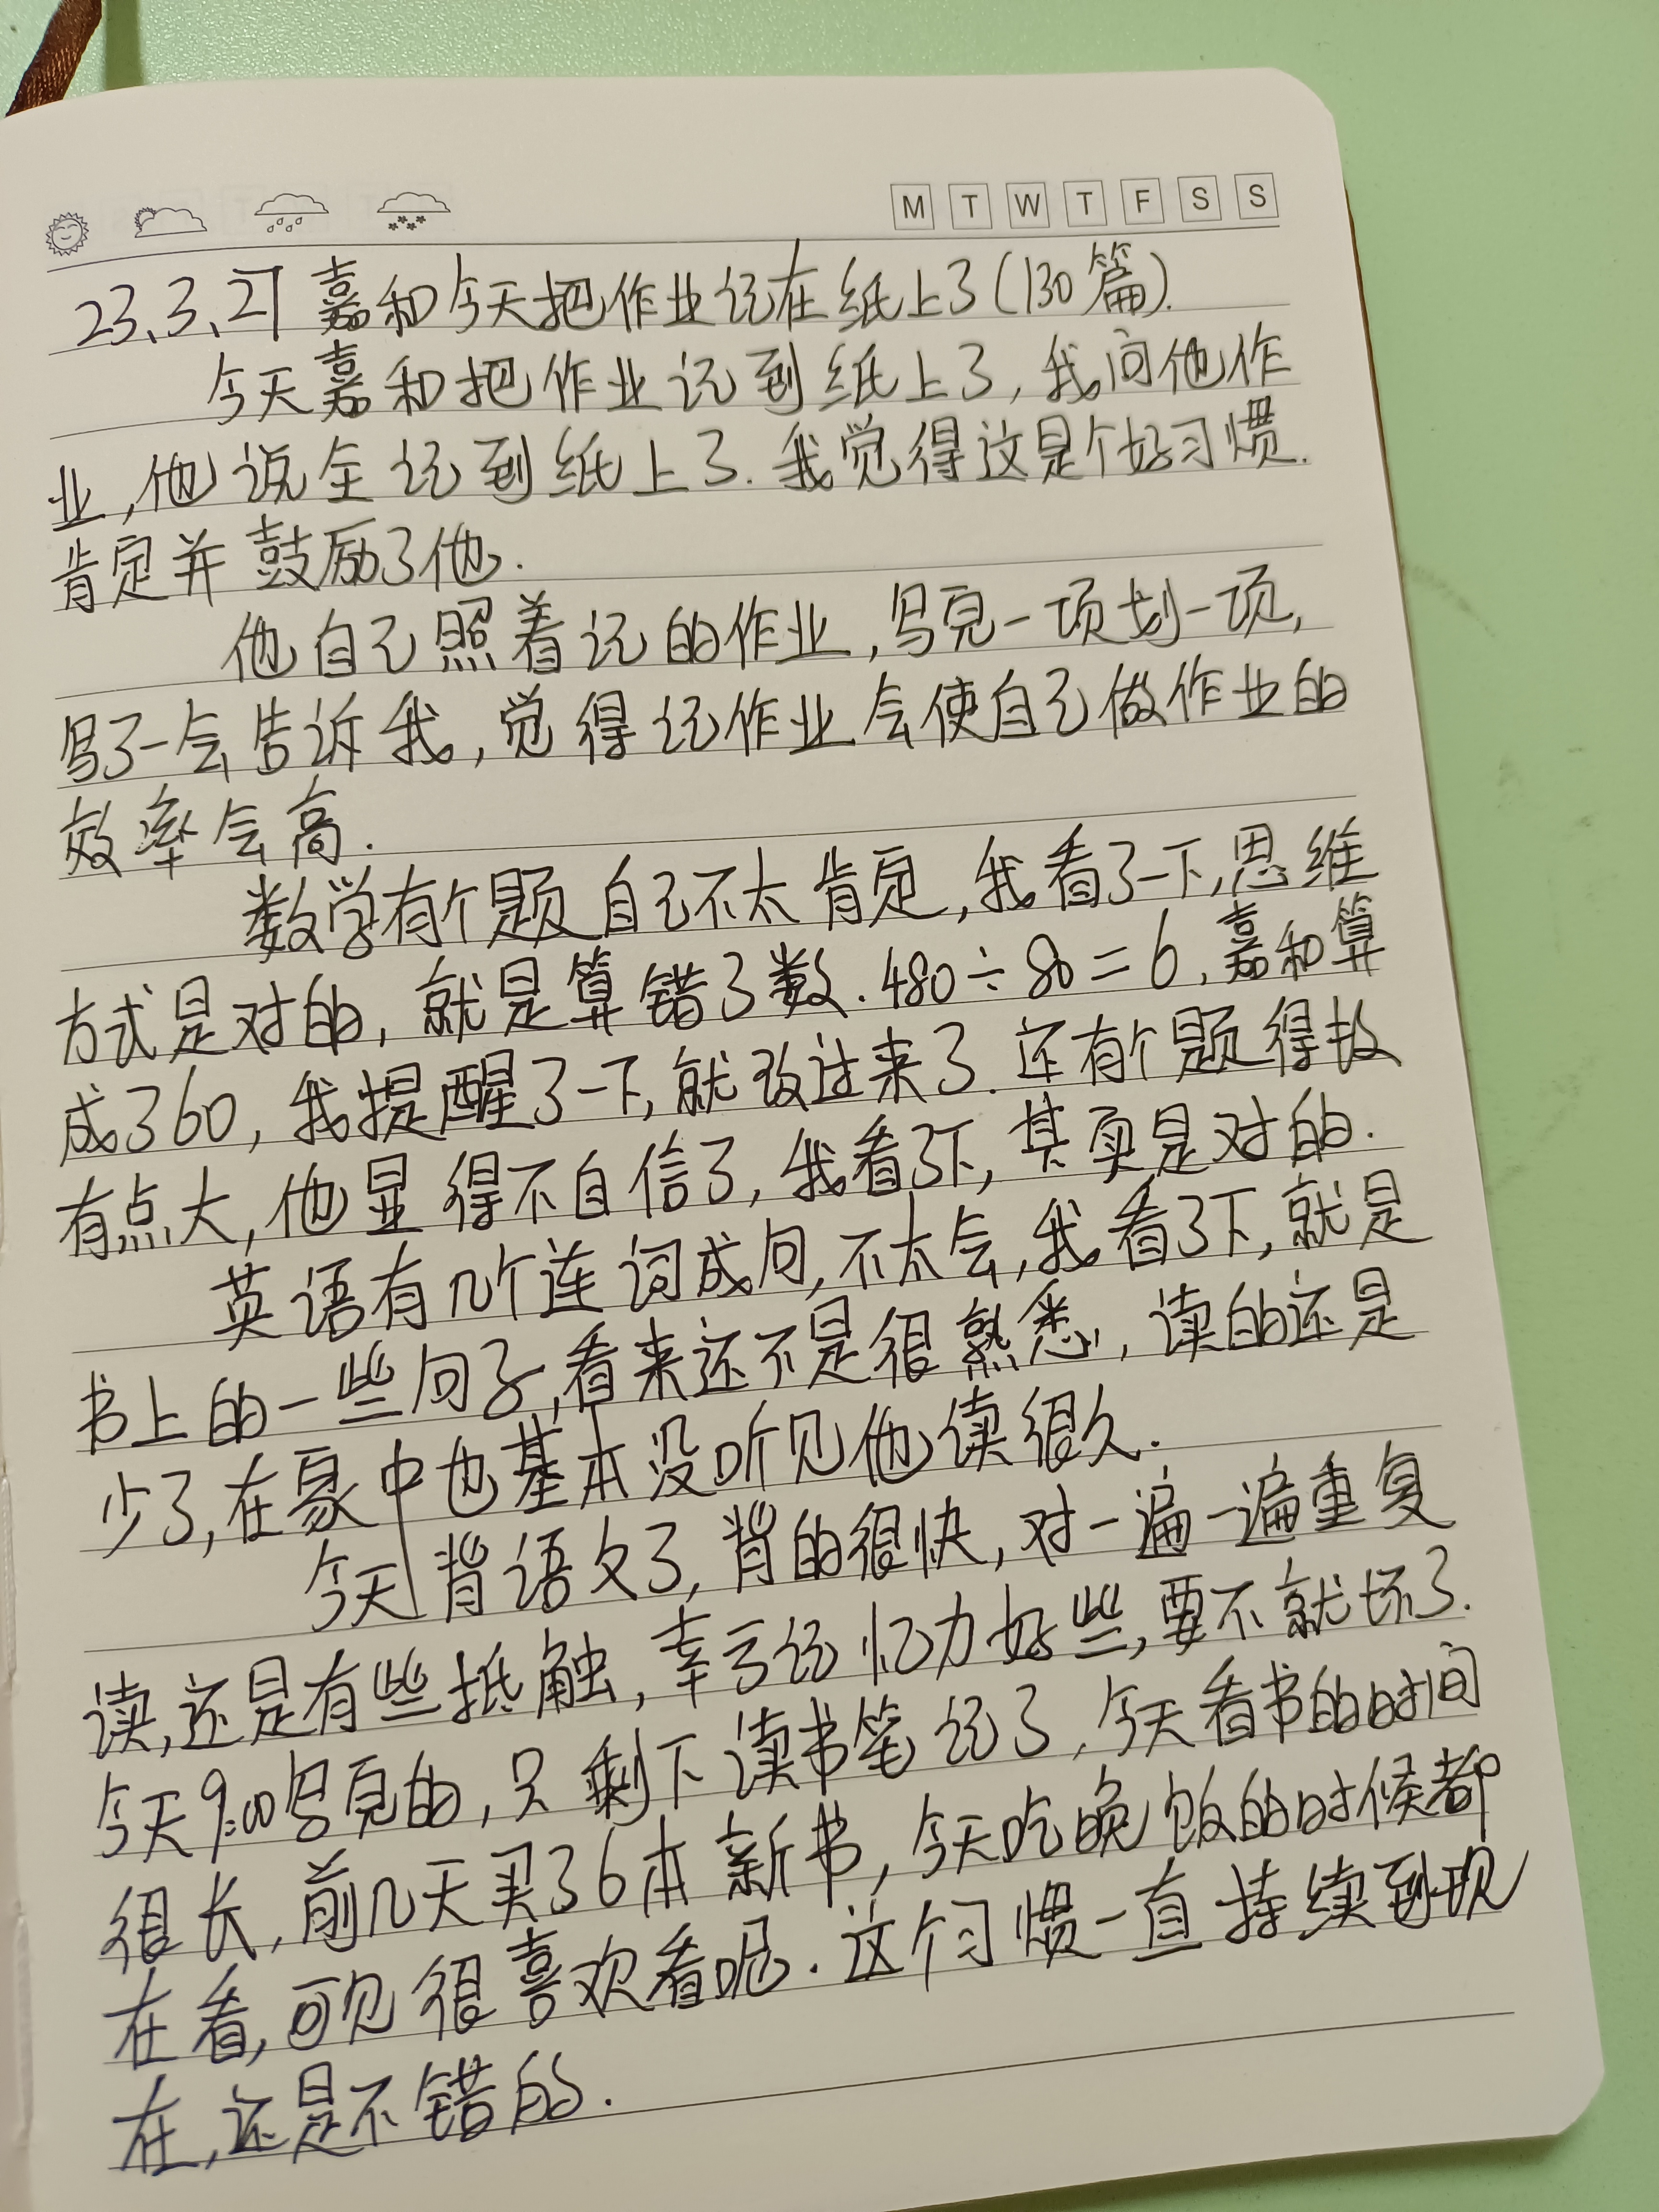 M T W T F S S
23、3、27 嘉和今天把作业记在纸上了(130篇).
今天嘉和把作业记到纸上了,我问他作
业,他说全记到纸上了.我觉得这是个好习惯.
肯定并鼓励了他.
他自己照着记的作业,写完一项划一项,
写了一会告诉我,觉得记作业会使自己做作业的
效率会高.
数学有个题自己不太肯定,我看了一下,思维
方式是对的,就是算错了数.480÷80=6,嘉和算
成了60,我提醒了一下,就改过来了.还有个题得数
有点大,他显得不自信了,我看了下,其实是对的.
英语有几个连词成句,不太会,我看了下,就是
书上的一些句子,看来还不是很熟悉,读的还是
少了,在家中也基本没听见他读很久.
今天背语文了,背的很快,对一遍一遍重复
读,还是有些抵触,幸亏记忆力好些,要不就坏了.
今天9:00写完的,只剩下读书笔记了,今天看书的时间
很长,前几天买了6本新书,今天吃晚饭的时候都
在看,可见很喜欢看呢.这个习惯一直持续到现
在,还是不错的.